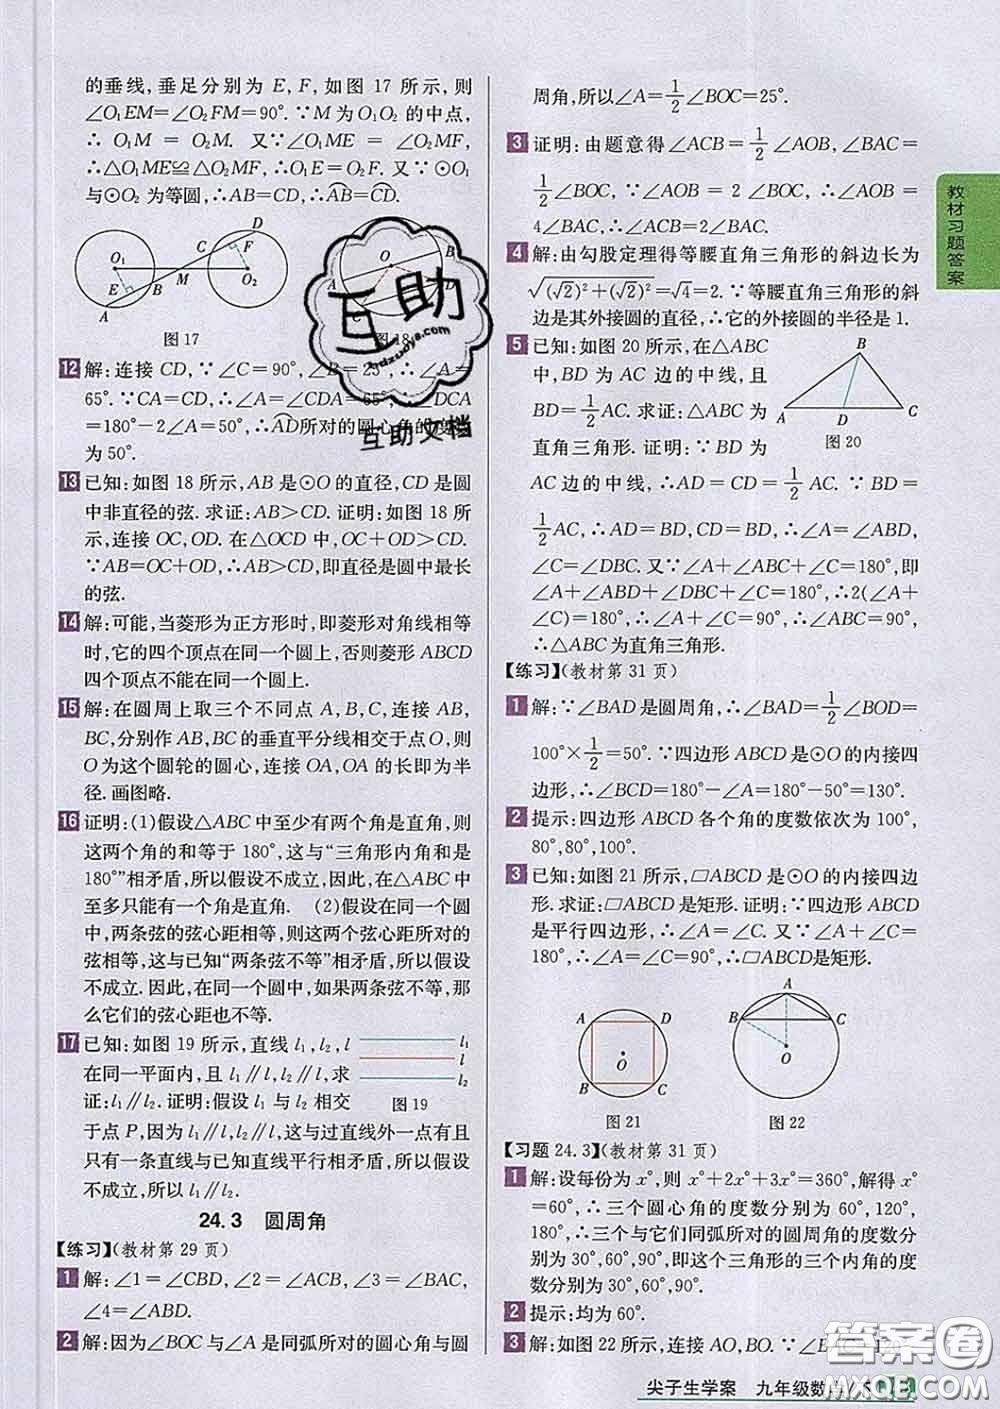 的垂线,垂足分别为 E, F, 如图 17 所示, 则
∠O₁EM=∠O₂FM=90°. ∵M 为 O₁O₂ 的中点,
∴ O₁M = O₂M. 又∵∠O₁ME = ∠O₂MF,
∴△O₁ME≌△O₂MF, ∴O₁E=O₂F. 又∵⊙O₁
与⊙O₂ 为等圆, ∴AB=CD, ∴AB=CD.
O₁ E A B M C D F O₂
图 17
O B D
图 18
12 解: 连接 CD, ∵∠C=90°, ∠B=25°, ∴∠A=
65°. ∵CA=CD, ∴∠A=∠CDA=65°, ∴∠DCA
=180°-2∠A=50°, ∴AD所对的圆心角的度数
为 50°.
13 已知: 如图 18 所示, AB 是⊙O 的直径, CD 是圆
中非直径的弦. 求证: AB>CD. 证明: 如图 18 所
示, 连接 OC, OD. 在△OCD 中, OC+OD>CD.
∵AB=OC+OD, ∴AB>CD, 即直径是圆中最长
的弦.
14 解: 可能, 当菱形为正方形时, 即菱形对角线相等
时, 它的四个顶点在同一个圆上, 否则菱形 ABCD
四个顶点不能在同一个圆上.
15 解: 在圆周上取三个不同点 A, B, C, 连接 AB,
BC, 分别作 AB, BC 的垂直平分线相交于点 O, 则
O 为这个圆轮的圆心, 连接 OA, OA 的长即为半
径. 画图略.
16 证明: (1)假设△ABC 中至少有两个角是直角, 则
这两个角的和等于 180°, 这与“三角形内角和是
180°”相矛盾, 所以假设不成立, 因此, 在△ABC 中
至多只能有一个角是直角. (2)假设在同一个圆
中, 两条弦的弦心距相等, 则这两个弦心距所对的
弦相等, 这与已知“两条弦不等”相矛盾, 所以假设
不成立. 因此, 在同一个圆中, 如果两条弦不等, 那
么它们的弦心距也不等.
17 已知: 如图 19 所示, 直线 l₁, l₂, l
在同一平面内, 且 l₁∥l, l₂∥l, 求
证: l₁∥l₂. 证明: 假设 l₁ 与 l₂ 相交
于点 P, 因为 l₁∥l, l₂∥l, 这与过直线外一点有且
只有一条直线与已知直线平行相矛盾, 所以假设
不成立, 所以 l₁∥l₂.
l₁
l
l₂
图 19
24.3 圆周角
【练习】(教材第 29 页)
1 解: ∠1=∠CBD, ∠2=∠ACB, ∠3=∠BAC,
∠4=∠ABD.
2 解: 因为∠BOC 与∠A 是同弧所对的圆心角与圆
周角, 所以∠A=1/2∠BOC=25°.
3 证明: 由题意得∠ACB=1/2∠AOB, ∠BAC=
1/2∠BOC, ∵∠AOB = 2∠BOC, ∴∠AOB =
4∠BAC, ∴∠ACB=2∠BAC.
4 解: 由勾股定理得等腰直角三角形的斜边长为
√((√2)²+(√2)²)=√4=2. ∵等腰直角三角形的斜
边是其外接圆的直径, ∴它的外接圆的半径是 1.
5 已知: 如图 20 所示, 在△ABC
中, BD 为 AC 边的中线, 且
BD=1/2AC. 求证: △ABC 为
直角三角形. 证明: ∵BD 为
AC 边的中线, ∴AD=CD=1/2AC. ∵BD=
1/2AC, ∴AD=BD, CD=BD, ∴∠A=∠ABD,
∠C=∠DBC. 又∵∠A+∠ABC+∠C=180°, 即
∠A+∠ABD+∠DBC+∠C=180°, ∴2(∠A+
∠C)=180°, ∴∠A+∠C=90°, ∴∠ABC=90°,
∴△ABC 为直角三角形.
B A D C
图 20
【练习】(教材第 31 页)
1 解: ∵∠BAD 是圆周角, ∴∠BAD=1/2∠BOD=
100°×1/2=50°. ∵四边形 ABCD 是⊙O 的内接四
边形, ∴∠BCD=180°-∠A=180°-50°=130°.
2 提示: 四边形 ABCD 各个角的度数依次为 100°,
80°, 80°, 100°.
3 已知: 如图 21 所示, ▱ABCD 是⊙O 的内接四边
形. 求证: ▱ABCD 是矩形. 证明: ∵四边形 ABCD
是平行四边形, ∴∠A=∠C. 又∵∠A+∠C=
180°, ∴∠A=∠C=90°, ∴▱ABCD是矩形.
A D O B C
图 21
A B C O
图 22
【习题 24.3】(教材第 31 页)
1 解: 设每份为 x°, 则 x°+2x°+3x°=360°, 解得 x°
=60°, ∴三个圆心角的度数分别为 60°, 120°,
180°, ∴三个与它们同弧所对的圆周角的度数分
别为 30°, 60°, 90°, 即这个三角形的三个内角的度
数分别为 30°, 60°, 90°.
2 提示: 均为 60°.
3 解: 如图 22 所示, 连接 AO, BO. ∵
教材习题答案
尖子生学案 九年级数学/下
互助
hdzuoye.com
互助文档
答案圈